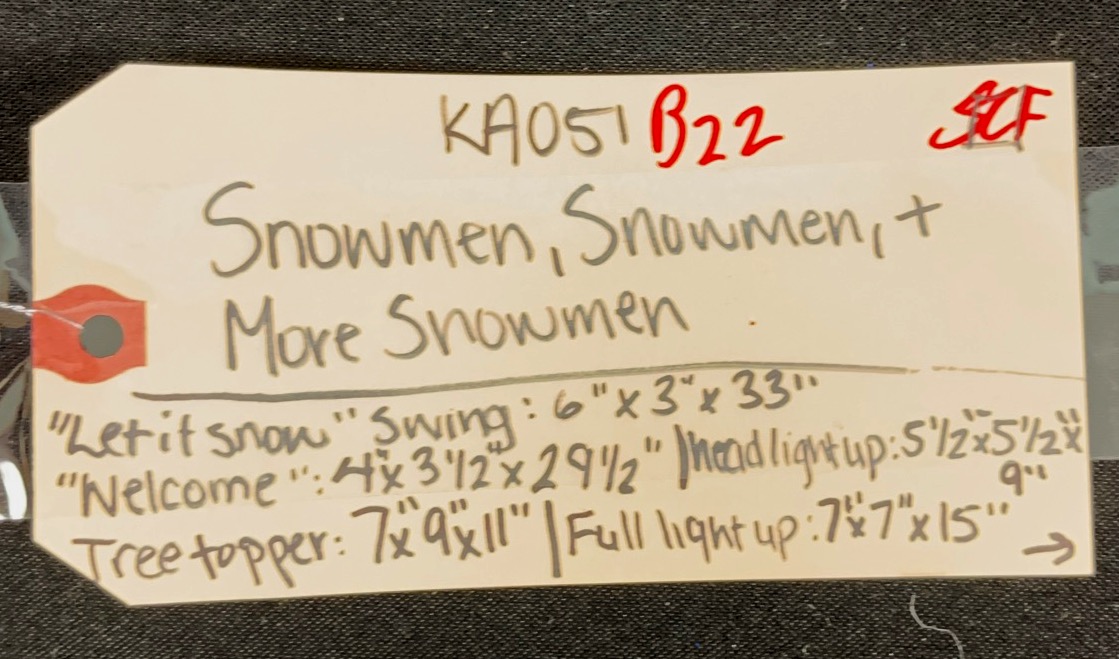 KA051 B22 SCF
Snowmen, Snowmen, +
More Snowmen
"Let it snow" Swing: 6" x 3" x 33"
"Welcome": 4" x 3 1/2" x 29 1/2" | head light up: 5 1/2" x 5 1/2" x
9"
Tree topper: 7" x 9" x 11" | Full light up: 7" x 7" x 15"
→